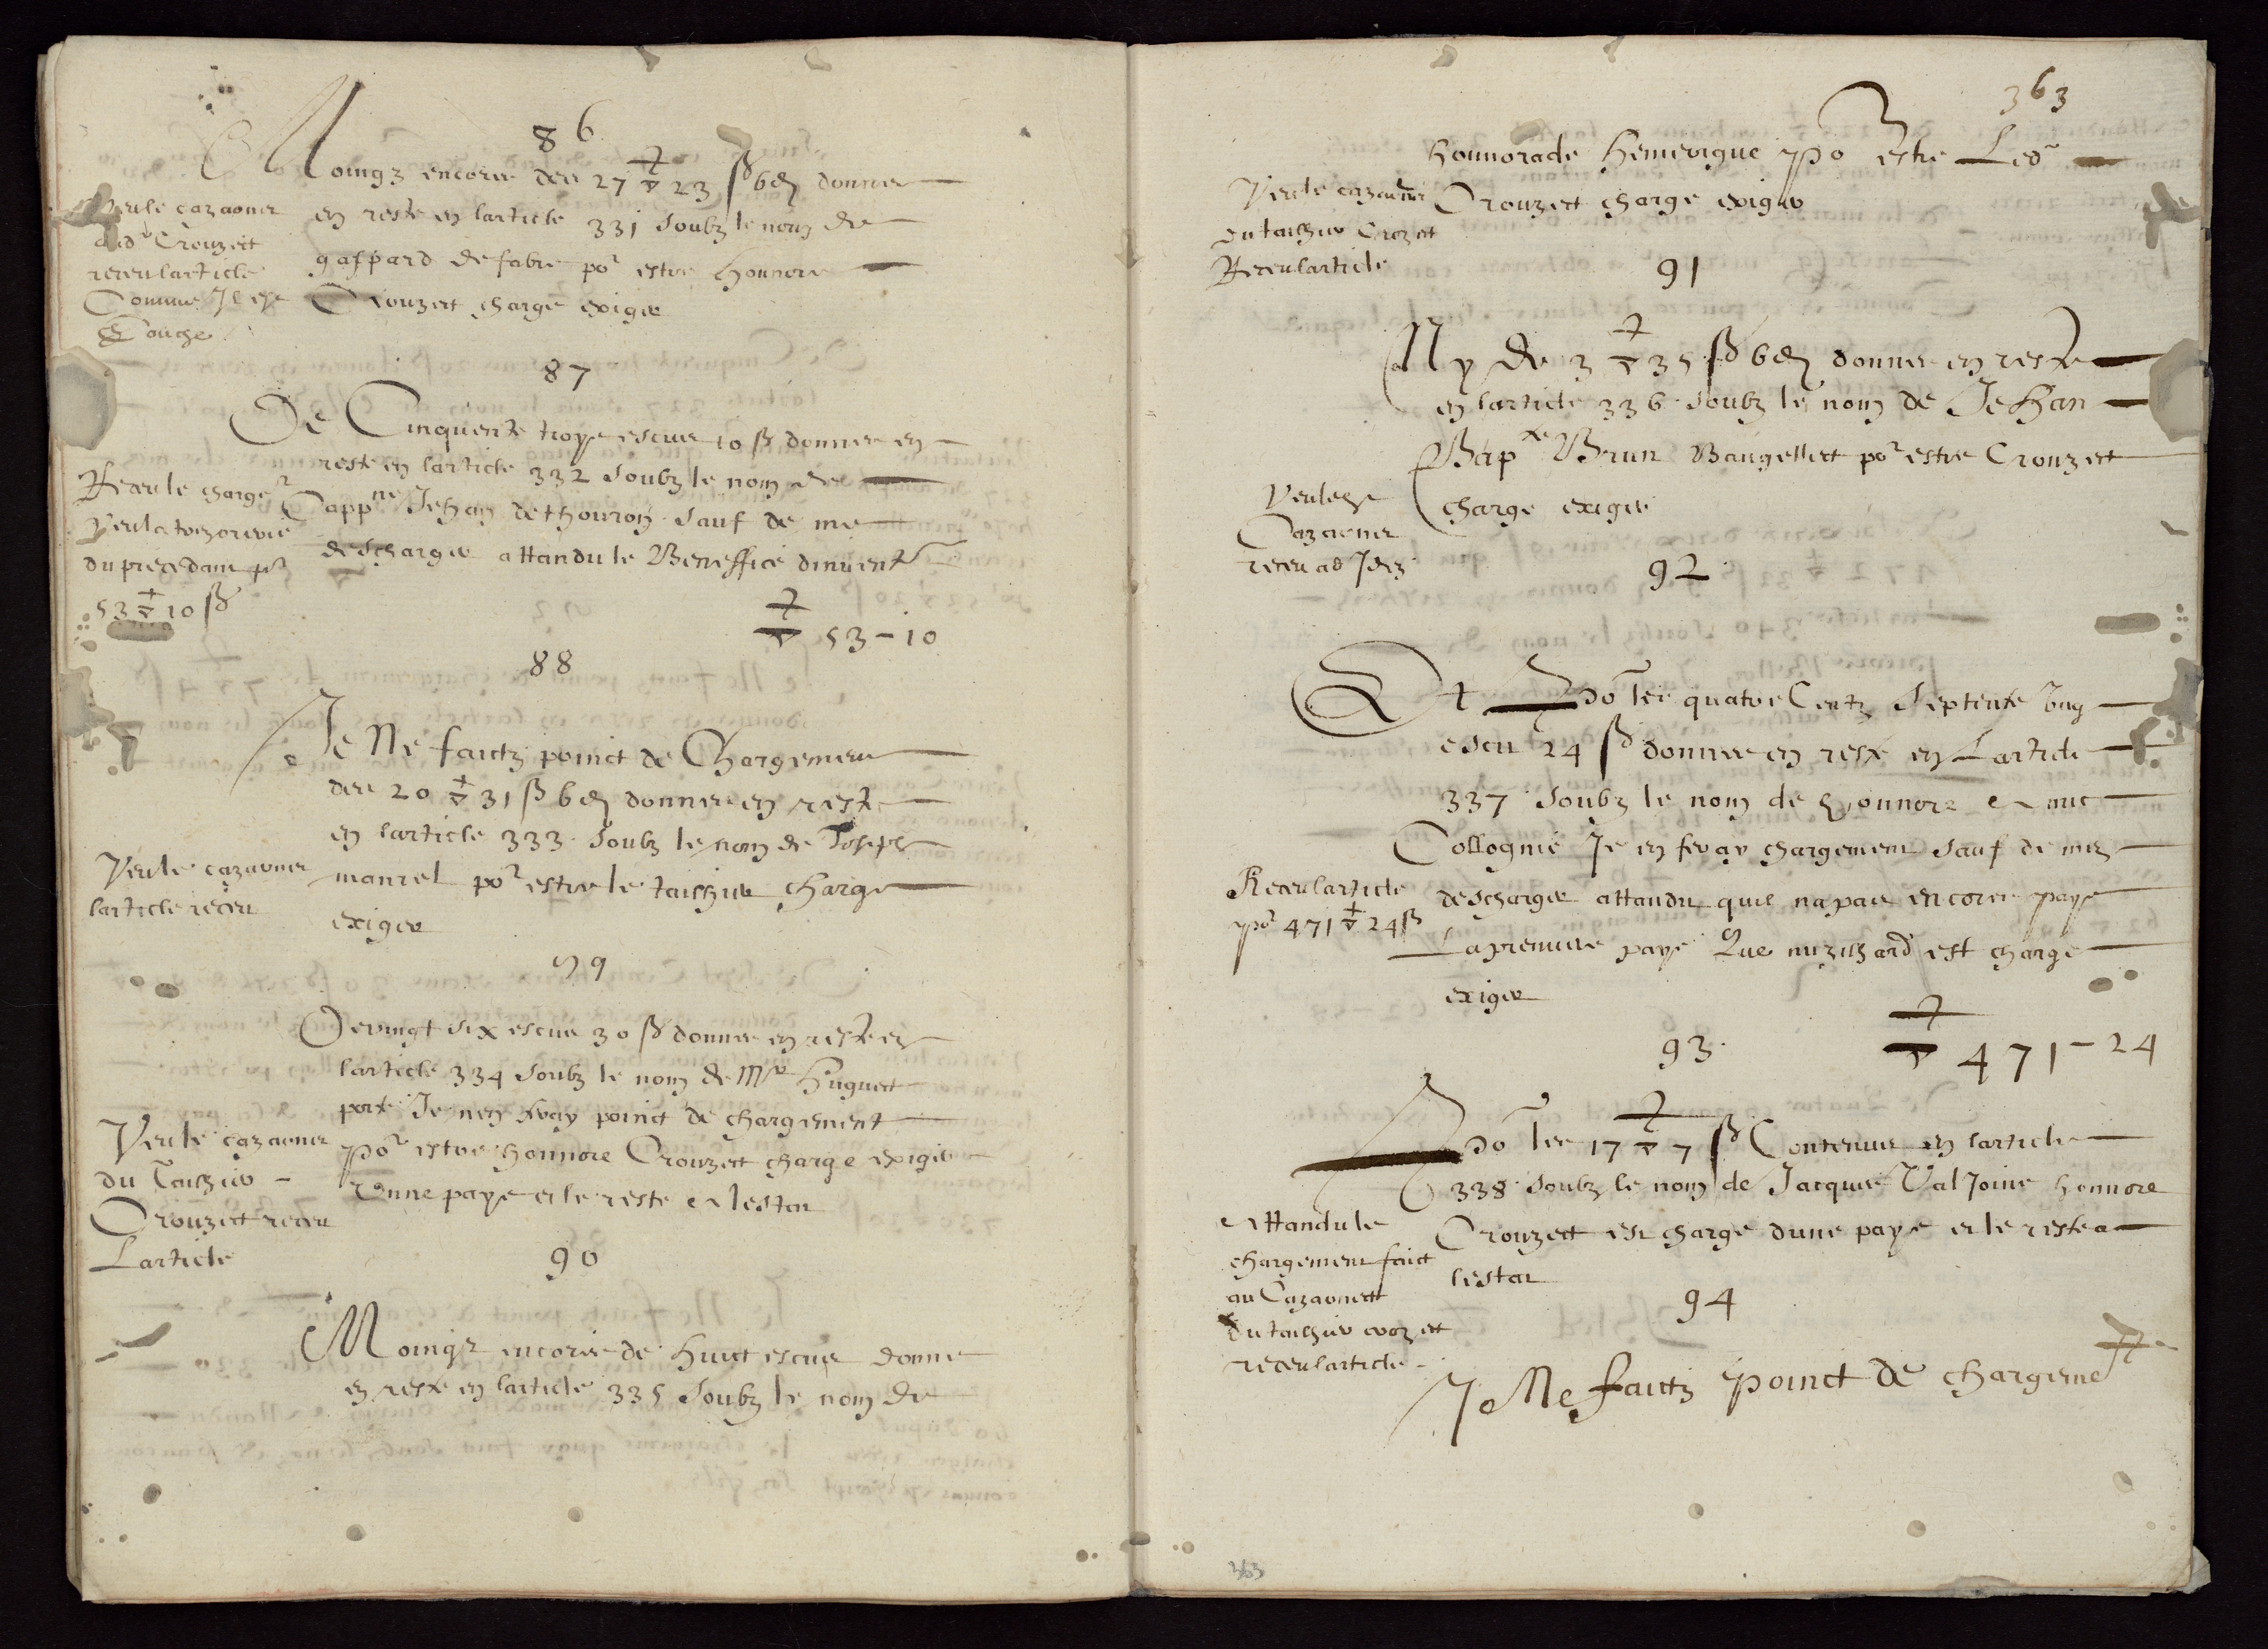 86
Moingz encores des 27 ▽ 23 ß 6 d donnes
en reste en larticle 331 soubz le nom de
gaspard de fabre por estre honnore
Crouzect charge exiger
Veu le cazaoner
dud Crouzect
receu larticle
Comme Il est
Couche
87
De Cinquente troys escus 10 ß donnes en
reste en larticle 332 soubz le nom de
Cappne Jehan de thouron sauf de me
descharger attandu le Beneffice dinventr
Receu le chargen
du precedant por
53 ▽ 10 ß
▽ 53 - 10
88
Je Ne faictz poinct de Chargement
des 20 ▽ 31 ß 6 d donnes en reste
en larticle 333 soubz le nom de Joseph
manrel por estre le taishier charge
exiger
Veu le cazaoner
larticle receu
89
De vingt six escus 30 ß donnes en reste en
larticle 334 soubz le nom de Mre huguect
porte Je nen feray poinct de chargement
por estre honnore Crouzect charge exiger
Dunne paye et le reste a lestat
Veu le cazaoner
du Taishier
Crouzect receu
Larticle
90
Moings encores de huict escus donne
en reste en larticle 335 soubz le nom de
363
honnorade hemerigue por estre Led
Crouzect charge exiger
Veu le cazaoner
du taishier Crozect
Receu larticle
91
Ny de 3 ▽ 35 ß 6 d donnes en reste
en larticle 336 soubz le nom de Jehan
Bapte Brun Baugellect por estre Crouzect
charge exiger
Veu le
Cazaoner
receu ad Idez
92
Et do les quatre Centz septente ung
escu 24 ß donnes en reste en Larticle
337 soubz le nom de honnore et
Collognie Je en feray chargement sauf de mes
descharger attandu quil na pas encores paye
La premiere paye Que est charge
exiger
Receu larticle
por 471 ▽ 24 ß
▽ 471 - 24
93
do les 17 ▽ 7 ß Contenus en larticle
338 soubz le nom de Jacques Valjoine honnore
Crouzect est charge dune paye et le reste a
lestat
Attandu le
chargement faict
au Cazaonect
du taishier crozect
receu larticle
94
Je Ne faictz poinct de chargement
363